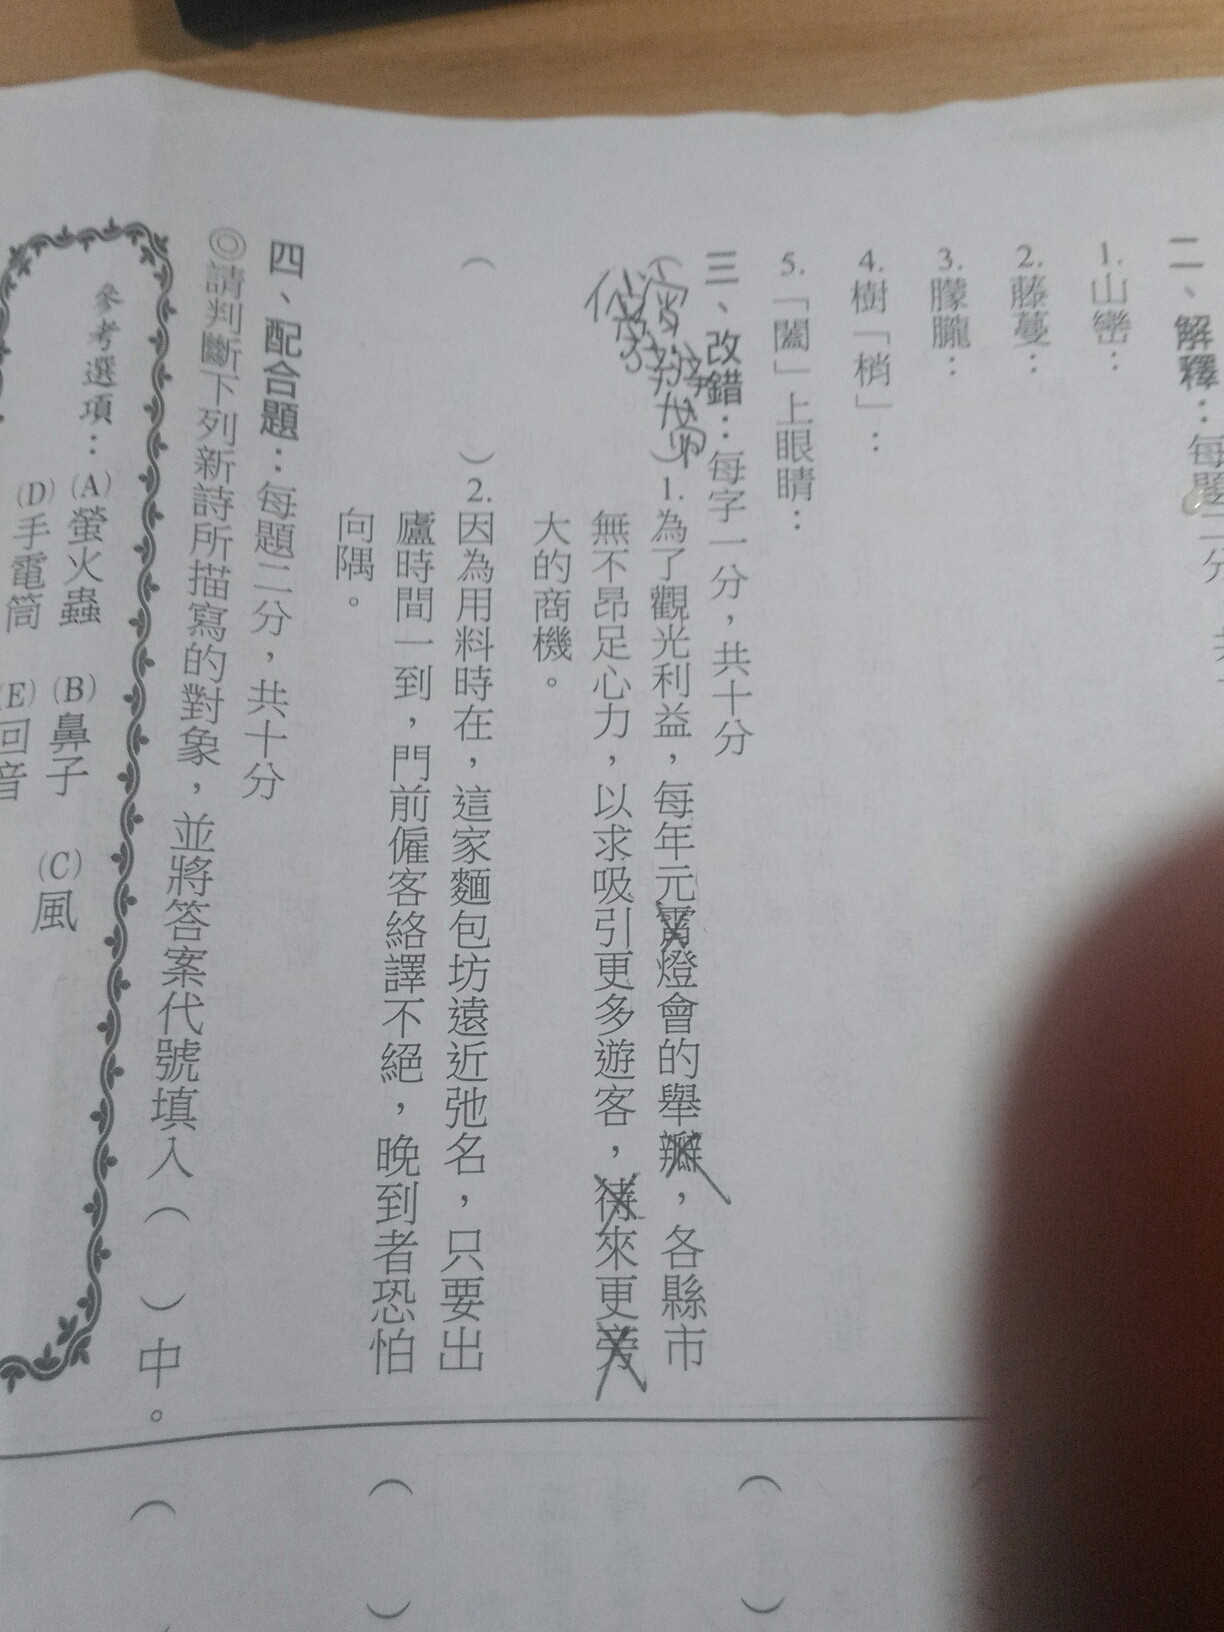 二、解釋：每題二分，共十
1.山巒：
2.藤蔓：
3.朦朧：
4.樹「梢」：
5.「闔」上眼睛：
三、改錯：每字一分，共十分
（）1.為了觀光利益，每年元霄燈會的舉瓣，各縣市
無不昂足心力，以求吸引更多遊客，待來更旁
大的商機。
（）2.因為用料時在，這家麵包坊遠近弛名，只要出
廬時間一到，門前僱客絡譯不絕，晚到者恐怕
向隅。
四、配合題：每題二分，共十分
◎請判斷下列新詩所描寫的對象，並將答案代號填入（）中。
參考選項：(A)螢火蟲 (B)鼻子 (C)風
(D)手電筒 (E)回音
（）
（）
（）